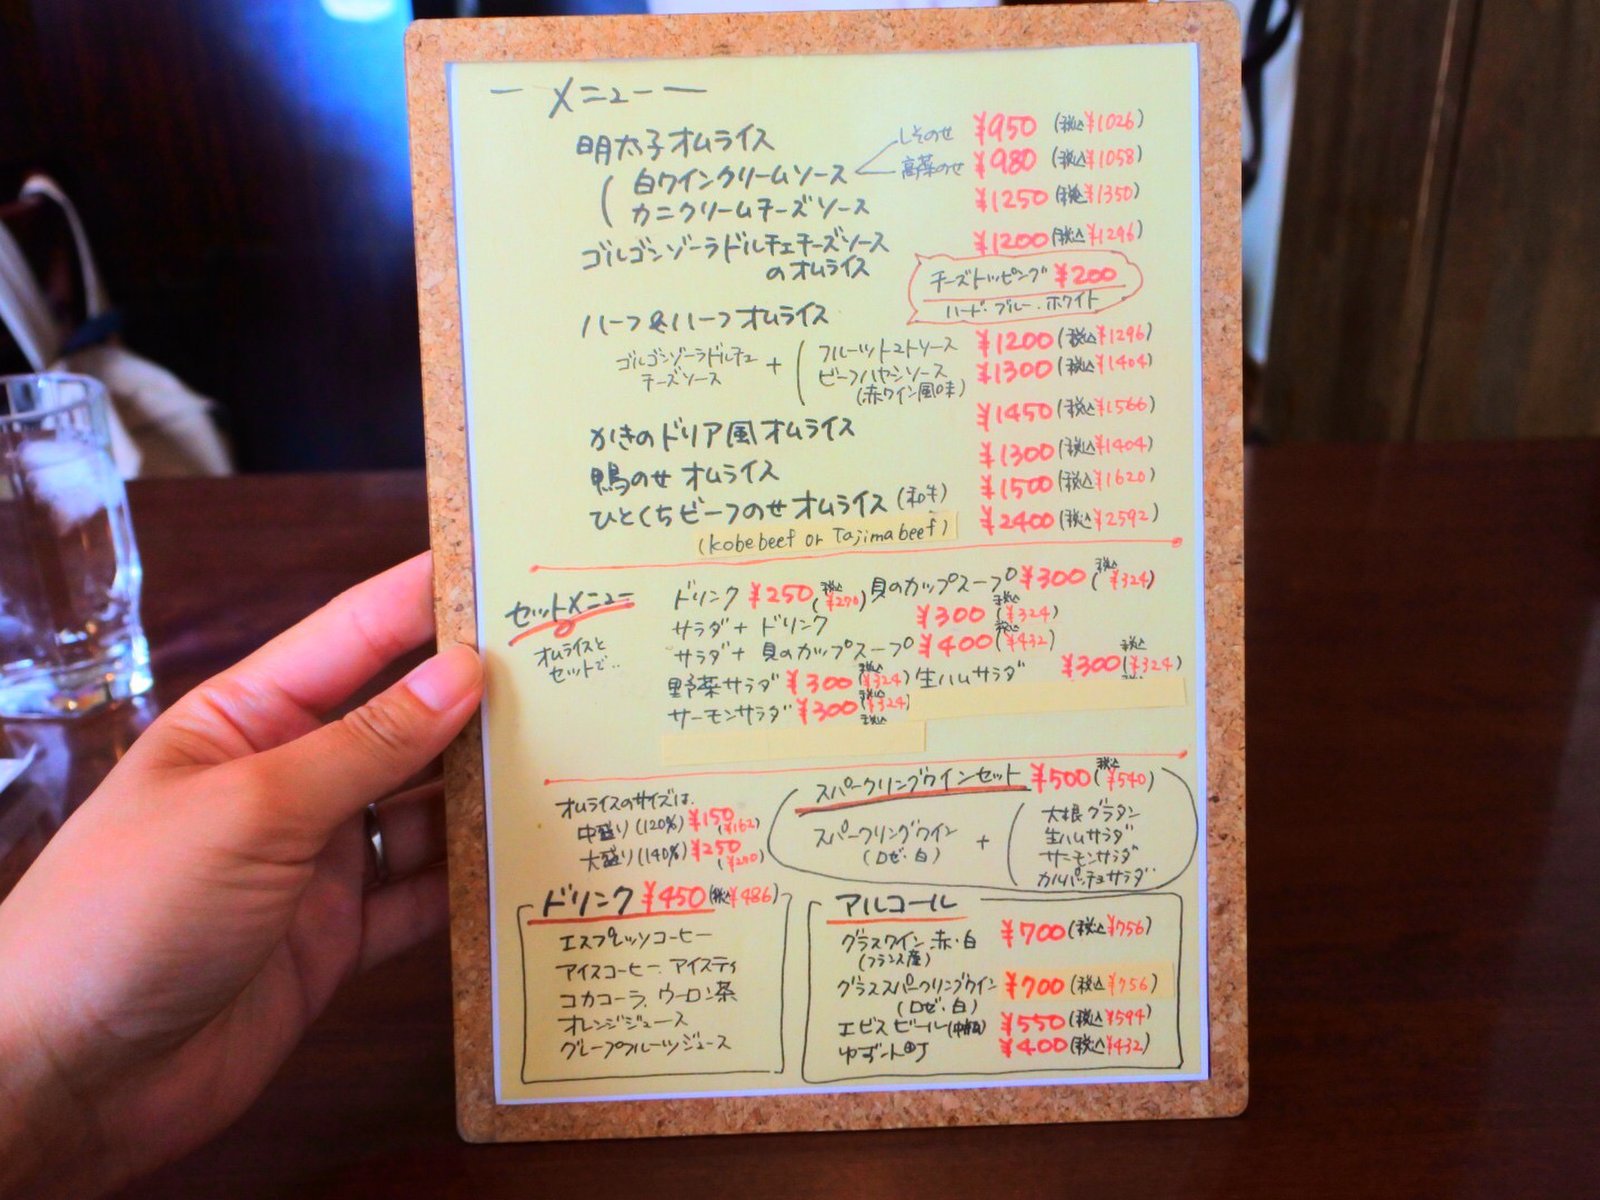 ー メニュー ー
明太子オムライス しそのせ ¥950 (税込¥1026)
(白ワインクリームソース 高菜のせ ¥980 (税込¥1058)
カニクリームチーズソース ¥1250 (税込¥1350)
ゴルゴンゾーラドルチェチーズソース ¥1200 (税込¥1296)
のオムライス
チーズトッピング ¥200
ハード・ブルー・ホワイト
ハーフ&ハーフオムライス
ゴルゴンゾーラドルチェ + (フルーツトマトソース ¥1200 (税込¥1296)
チーズソース ビーフハヤシソース ¥1300 (税込¥1404)
(赤ワイン風味)
かきのドリア風オムライス ¥1450 (税込¥1566)
鴨のせオムライス ¥1300 (税込¥1404)
ひとくちビーフのせオムライス (和牛) ¥1500 (税込¥1620)
(kobe beef or Tajima beef) ¥2400 (税込¥2592)
セットメニュー
オムライスと
セットで..
ドリンク ¥250 (税込¥270) 貝のカップスープ ¥300 (税込¥324)
サラダ+ドリンク ¥300 (税込¥324)
サラダ+貝のカップスープ ¥400 (税込¥432)
野菜サラダ ¥300 (税込¥324) 生ハムサラダ ¥300 (税込¥324)
サーモンサラダ ¥300 (税込¥324)
税込
オムライスのサイズは、
中盛り(120%) ¥150 (¥162)
大盛り(140%) ¥250 (¥270)
スパークリングワインセット ¥500 (税込¥540)
スパークリングワイン + (大根グラタン
(ロゼ・白) 生ハムサラダ
サーモンサラダ
カルパッチョサラダ
ドリンク ¥450 (税込¥486)
エスプレッソコーヒー
アイスコーヒー、アイスティ
コカコーラ、ウーロン茶
オレンジジュース
グレープフルーツジュース
アルコール
グラスワイン 赤・白 ¥700 (税込¥756)
(フランス産)
グラススパークリングワイン ¥700 (税込¥756)
(ロゼ・白)
エビスビール(中瓶) ¥550 (税込¥594)
ゆず小町 ¥400 (税込¥432)